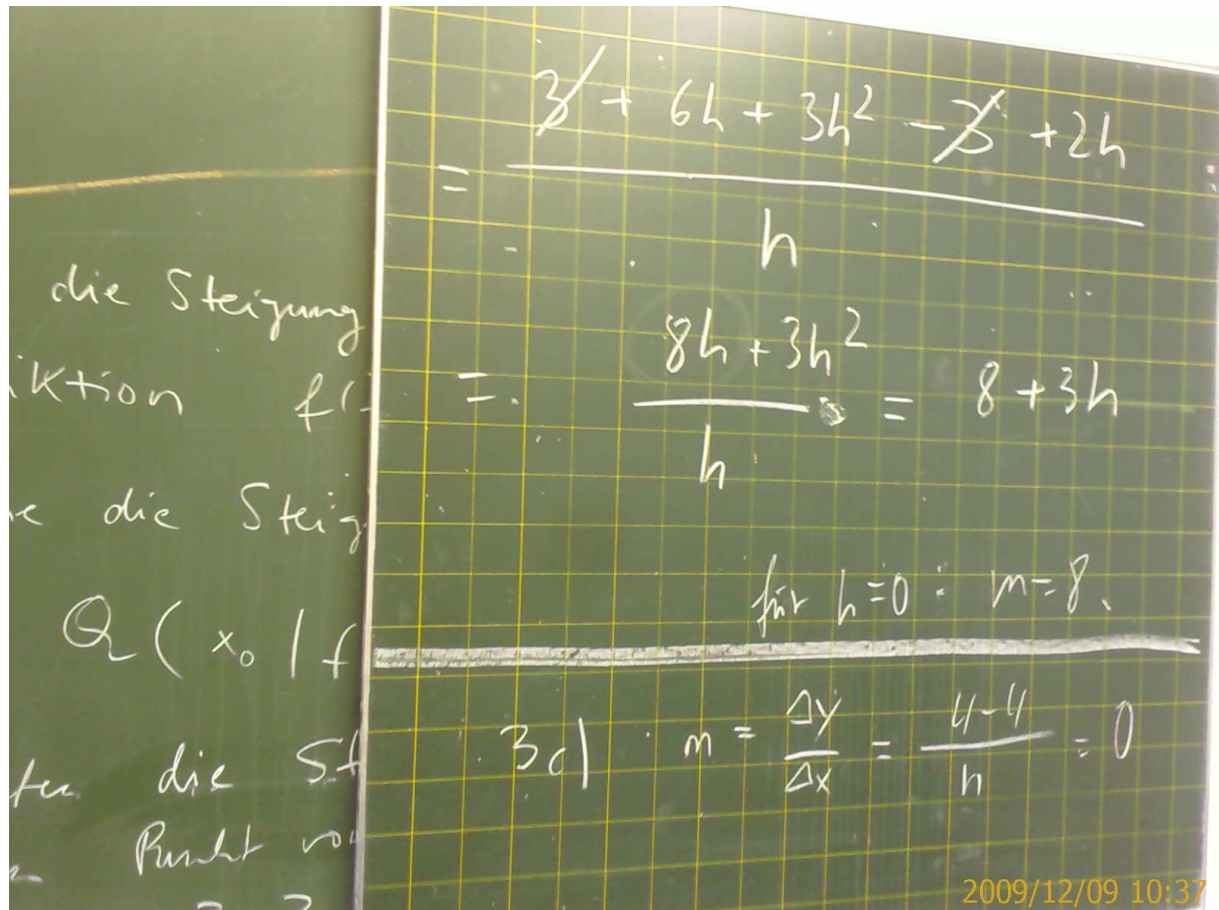 die Steigung
ktion f(
die Steig
Q ( x₀ | f
die St
Punkt vo
= (3 + 6h + 3h² - 3 + 2h) / h
= (8h + 3h²) / h = 8 + 3h
für h = 0 : m = 8
3c) m = Δy / Δx = (4 - 4) / h = 0
2009/12/09 10:37